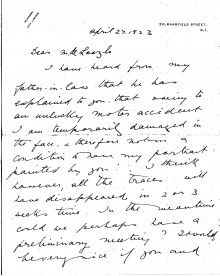 20, MANSFIELD STREET,
W.1.
April 27. 1923
Dear Mr de Laszlo
I have heard from my
father-in-law that he has
explained to you that owing to
an unlucky motor accident
I am temporarily damaged in
the face, & therefore not in a
condition to have my portrait
painted by you. I think
however, all the traces will
have disappeared in 2 or 3
weeks time. In the meantime
could we perhaps have a
preliminary meeting? It would
be very nice if you and